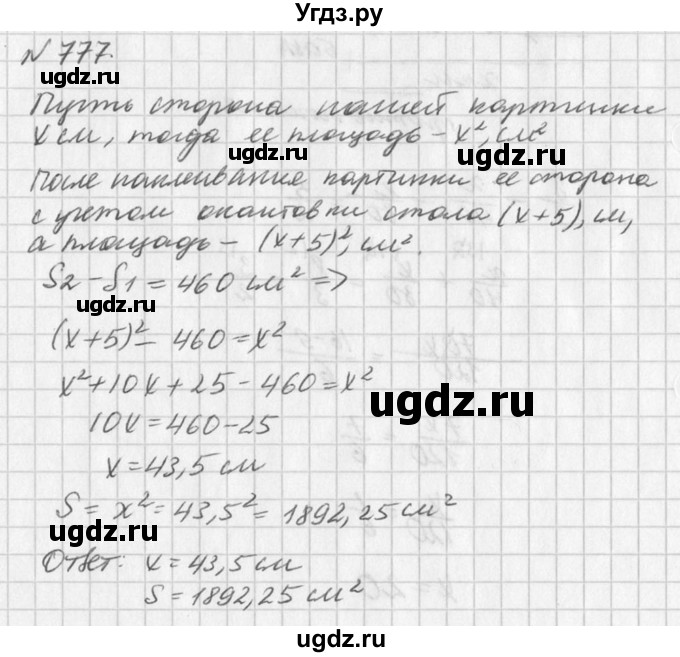 Угдз.ру
N 777.
ugdz.ru
Пусть сторона нашей картинки
x см, тогда ее площадь - x², см²
ugdz.ru ugdz.ru
После наклеивание картинки ее сторона
с учетом окантовки стала (x+5), см,
а площадь - (x+5)², см².
S2 - S1 = 460 см² =>
ugdz.ru
(x+5)² - 460 = x²
x² + 10x + 25 - 460 = x²
ugdz.ru
10x = 460 - 25
x = 43,5 см
S = x² = 43,5² = 1892,25 см²
ugdz.ru ugdz.ru
Ответ: x = 43,5 см
S = 1892,25 см²
ugdz.ru
ugdz.ru